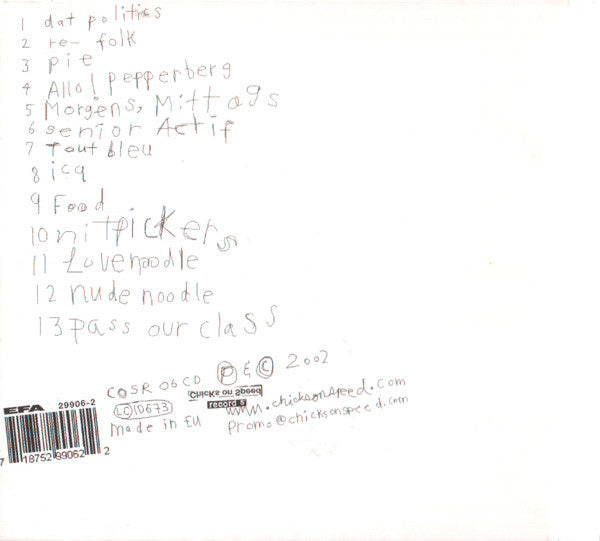 1 dat politics
2 re- folk
3 pie
4 Allo! pepperberg
5 Morgens, Mittags
6 senior Actif
7 Tout bleu
8 icq
9 Food
10 nitpickers
11 Lovenoodle
12 nude noodle
13 pass our class
COSR 06 CD P & C 2002
EFA 29906-2
LC10673
Chicks on Speed
records
www.chicksonspeed.com
made in EU
promo@chicksonspeed.com
7 18752 99062 2